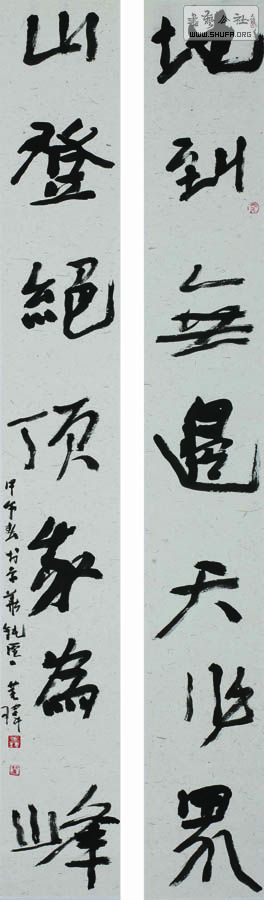 地到無邊天作界
山登絕頂我為峰
甲午春
書法公社
WWW.SHUFA.ORG